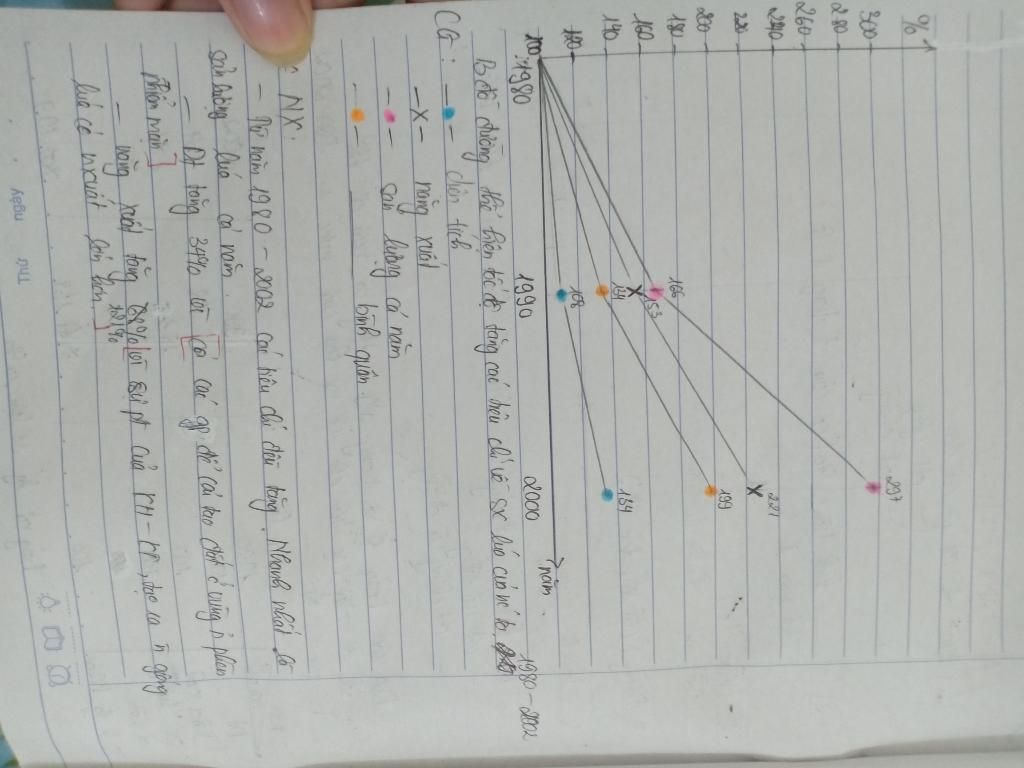 %
300
280
260
240
220
200
180
160
140
120
100
297
221
199
166
153
134
106
1980
1990
2000
năm
B.đồ đường thể hiện tốc độ tăng các tiêu chí về sx lúa của nc ta 1980 - 2002
CG:
diện tích
- X - năng xuất
sản lượng cả năm
bình quân
NX:
- Từ năm 1980 - 2002 các tiêu chí đều tăng. Nhanh nhất là
sản lượng lúa cả năm
- Dt tăng 34% vì có các gp để cải tạo đất ở vùng n phèn
nhiễm mặn
- năng xuất tăng 121% vì sự pt của KH - KT, tạo ra n giống
lúa có nxuất lớn hơn
Thứ
ngày